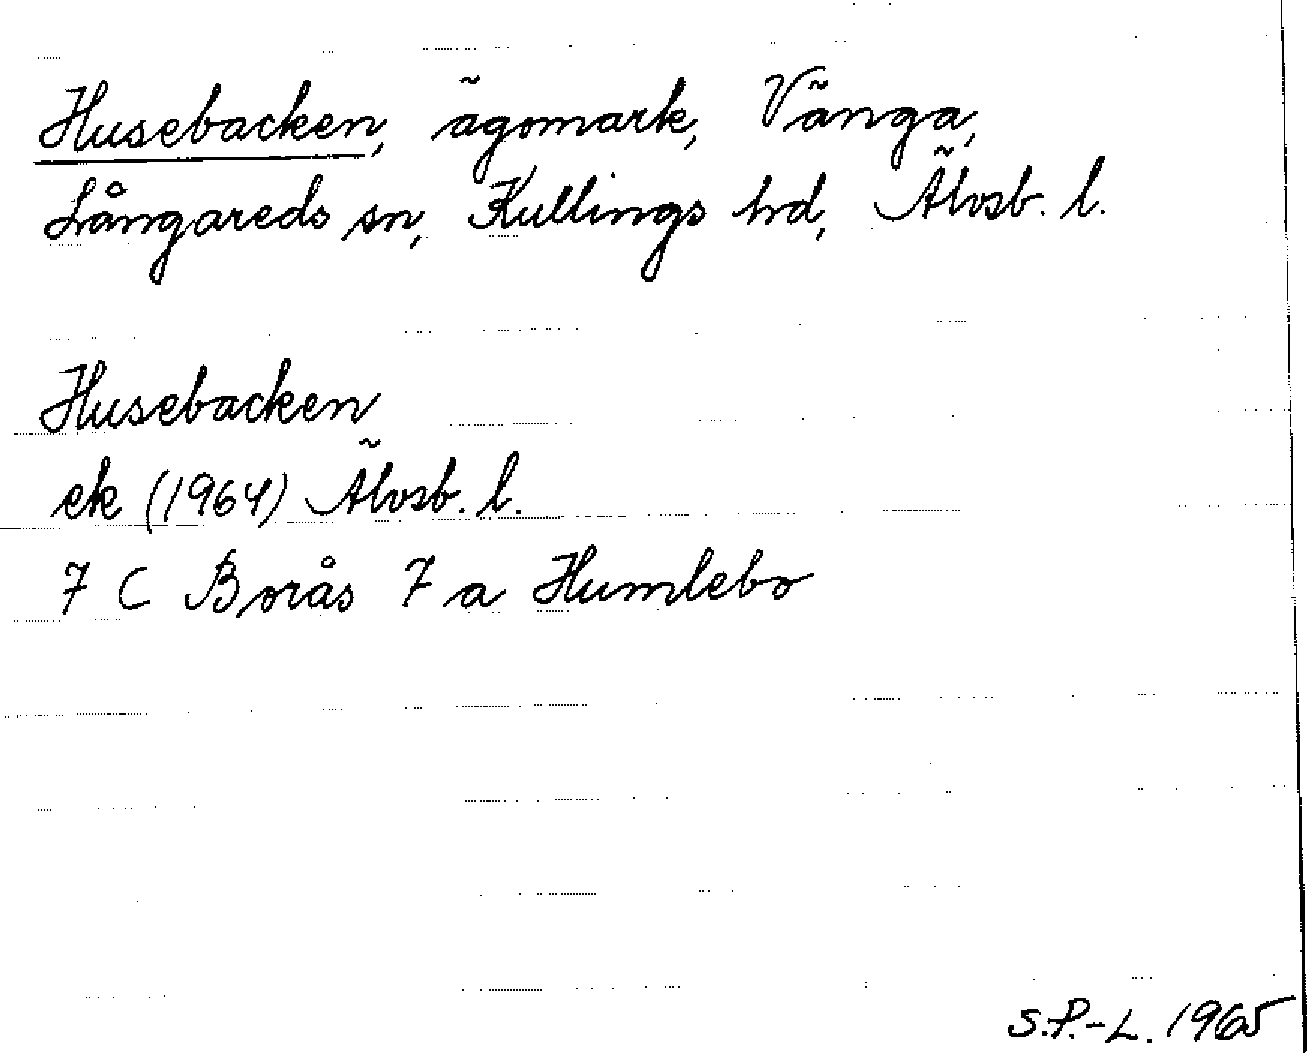 Husebacken, ägomark, Vänga,
Långareds sn, Kullings hd, Älvsb. l.
Husebacken
ek (1964) Älvsb. l.
7 C Borås 7 a Humlebo
S.P.-L. 1965